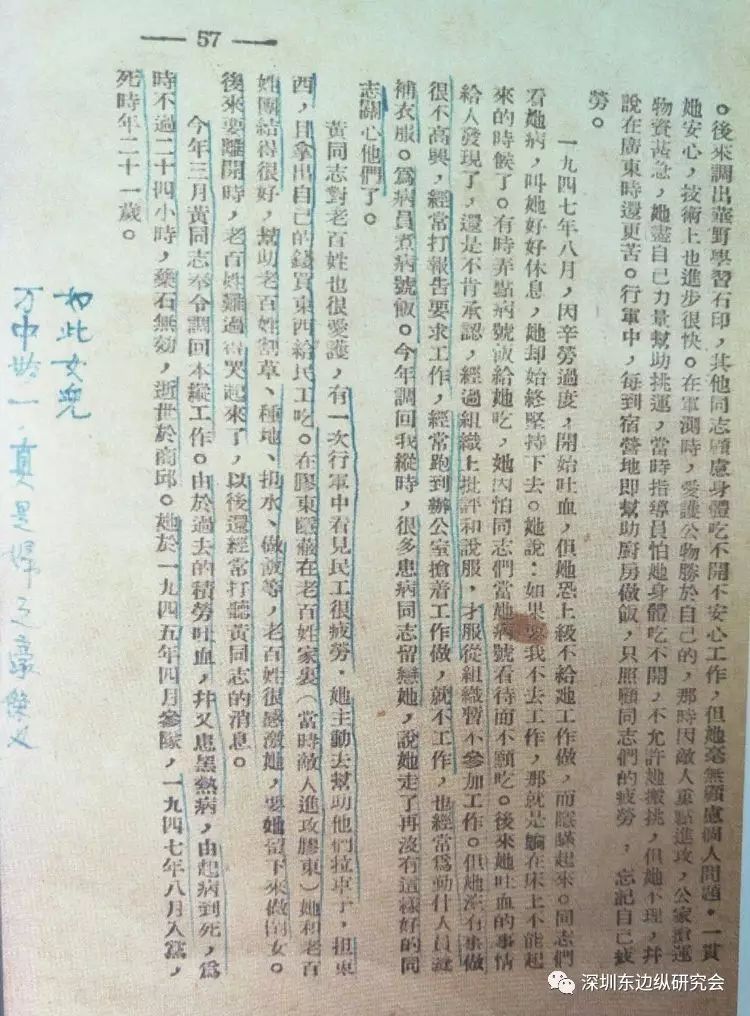 — 57 —
。後來調出華野學習石印，其他同志顧慮身體吃不開不安心工作，但她毫無顧慮個人問題。一貫
她安心，技術上也進步很快。在軍測時，愛護公物勝於自己的，那時因敵人重點進攻，公家搬運
物資甚急，她盡自己力量幫助挑運，當時指導員怕她身體吃不開，不允許她搬挑，但她不理，幷
說在廣東時還更苦。行軍中，每到宿營地即幫助厨房做飯，只照顧同志們的疲勞，忘記自己疲
勞。
一九四七年八月，因辛勞過度，開始吐血，但她恐上級不給她工作做，而隱瞞起來。同志們
看她病，叫她好好休息，她却始終堅持下去。她說：如果要我不去工作，那就是躺在床上不能起
來的時候了。有時弄點病號飯給她吃，她因怕同志們當她病號看待而不願吃。後來她吐血的事情
給人發現了，還是不肯承認，經過組織上批評和說服，才服從組織暫不參加工作。但她沒有事做
很不高興，經常打報告要求工作，經常跑到辦公室搶着工作做，就不工作，也經常爲勤什人員
補衣服。爲病員煮病號飯。今年調回我縱時，很多患病同志留戀她，說她走了再沒有這樣好的同
志關心他們了。
黃同志對老百姓也很愛護，有一次行軍中看見民工很疲勞，她主動去幫助他們拉車子，担東
西，且拿出自己的錢買東西給民工吃。在膠東隱蔽在老百姓家裏（當時敵人進攻膠東）她和老百
姓團結得很好，幫助老百姓割草、種地、担水、做飯等，老百姓很感激她，要她留下來做閨女。
後來要離開時，老百姓難過得哭起來了，以後還經常打聽黃同志的消息。
今年三月黃同志奉令調回本縱工作。由於過去的積勞吐血，幷又患黑熱病，由起病到死，爲
時不過二十四小時，藥石無効，逝世於商邱。她於一九四五年四月參隊，一九四七年八月入黨，
死時年二十一歲。
如此女兒
万中無一，真是婦之豪傑也
深圳东边纵研究会